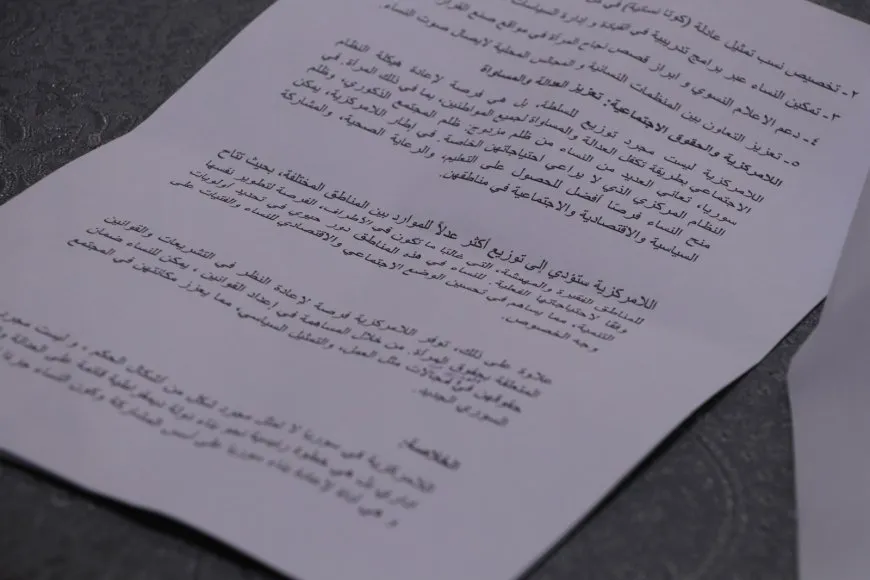 تخصيص نسب تمثيل عادلة (كوتا نسائية) في
٢- تمكين النساء عبر برامج تدريبية في القيادة و إدارة السياسات
٣- دعم الاعلام النسوي و ابراز قصص نجاح المرأة في مواقع صنع القرار
٤- تعزيز التعاون بين المنظمات النسائية و المجالس المحلية لايصال صوت النساء.
٥- اللامركزية والحقوق الاجتماعية: تعزيز العدالة والمساواة
اللامركزية ليست مجرد توزيع للسلطة، بل هي فرصة لإعادة هيكلة النظام
الاجتماعي بطريقة تكفل العدالة والمساواة لجميع المواطنين، بما في ذلك المرأة. في
سوريا، تعاني العديد من النساء من ظلم مزدوج: ظلم المجتمع الذكوري، وظلم
النظام المركزي الذي لا يراعي احتياجاتهن الخاصة. في إطار اللامركزية، يمكن
منح النساء فرصًا أفضل للحصول على التعليم، والرعاية الصحية، والمشاركة
السياسية والاقتصادية والاجتماعية في مناطقهن.
اللامركزية ستؤدي إلى توزيع أكثر عدلاً للموارد بين المناطق المختلفة، بحيث تتاح
للمناطق الفقيرة والمهمشة، التي غالبًا ما تكون في الأطراف، الفرصة لتطوير نفسها
وفقًا لاحتياجاتها الفعلية. للنساء في هذه المناطق دور حيوي في تحديد أولويات
التنمية، مما يساهم في تحسين الوضع الاجتماعي والاقتصادي للنساء والفتيات على
وجه الخصوص.
علاوة على ذلك، توفر اللامركزية فرصة لإعادة النظر في التشريعات والقوانين
المتعلقة بحقوق المرأة. من خلال المساهمة في إعداد القوانين، يمكن للنساء ضمان
حقوقهن في مجالات مثل العمل، والتمثيل السياسي، مما يعزز مكانتهن في المجتمع
السوري الجديد.
الخلاصة:
اللامركزية في سوريا لا تمثل مجرد شكل من أشكال الحكم، و ليست مجرد
اداري بل هي خطوة رئيسية نحو بناء دولة ديمقراطية قائمة على العدالة
و هي أداة لإعادة بناء سوريا على أسس المشاركة وتكون النساء جزءا